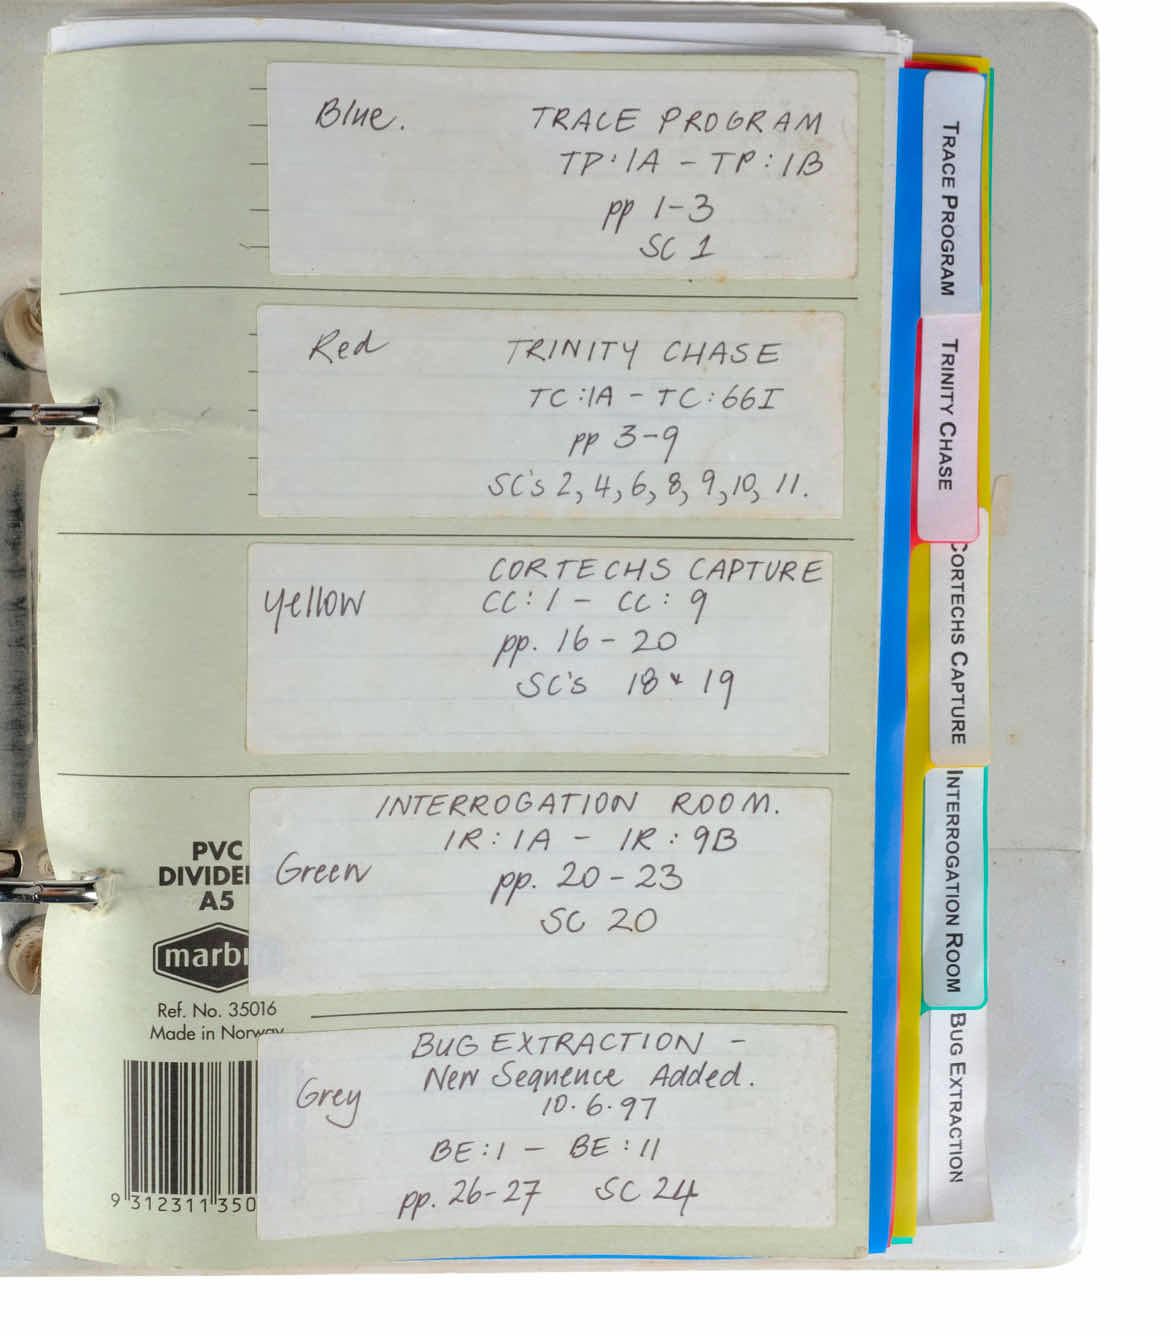 Blue.
TRACE PROGRAM
TP:1A - TP:1B
pp 1-3
SC 1
Red
TRINITY CHASE
TC:1A - TC:66I
pp 3-9
SC's 2, 4, 6, 8, 9, 10, 11.
Yellow
CORTECHS CAPTURE
CC:1 - CC:9
pp. 16-20
SC's 18 & 19
INTERROGATION ROOM.
IR:1A - IR:9B
Green
pp. 20-23
SC 20
BUG EXTRACTION -
New Sequence Added.
Grey
10.6.97
BE:1 - BE:11
pp. 26-27 SC 24
PVC
DIVIDE
A5
marb
Ref. No. 35016
Made in Norway
9 312311 350
TRACE PROGRAM
TRINITY CHASE
CORTECHS CAPTURE
INTERROGATION ROOM
BUG EXTRACTION